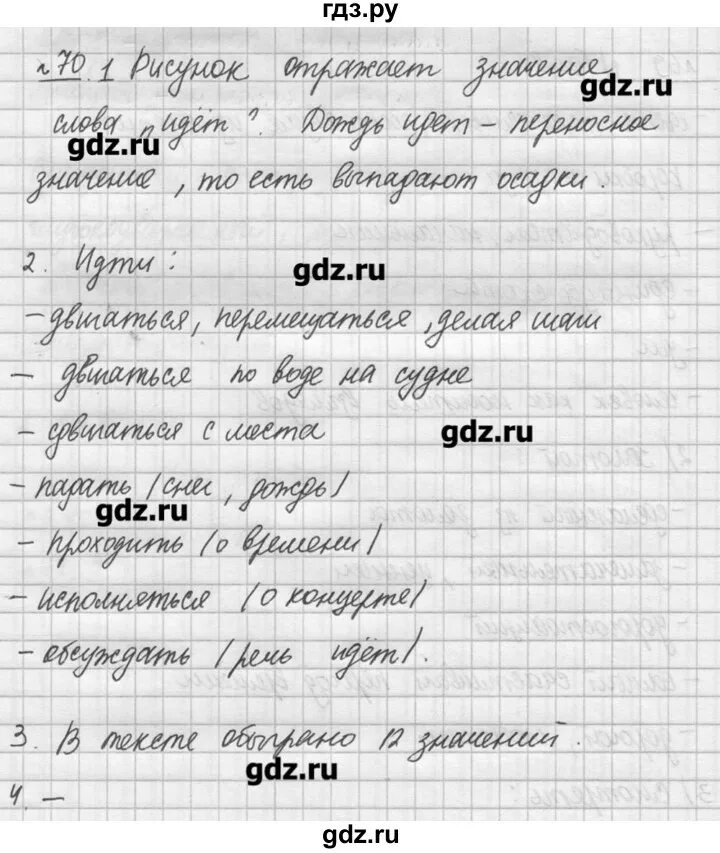 гдз.ру
№70. 1 Рисунок отражает значение
gdz.ru
слова „идёт“. Дождь идет – переносное
gdz.ru
значение, то есть выпадают осадки.
2. Идти:
gdz.ru
– двигаться, перемещаться, делая шаги
– двигаться по воде на судне
– сдвигаться с места
gdz.ru
– падать (снег, дождь)
gdz.ru
– проходить (о времени)
– исполняться (о концерте)
– обсуждать (речь идёт).
3. В тексте обыграно 12 значений.
gdz.ru
4. –
gdz.ru